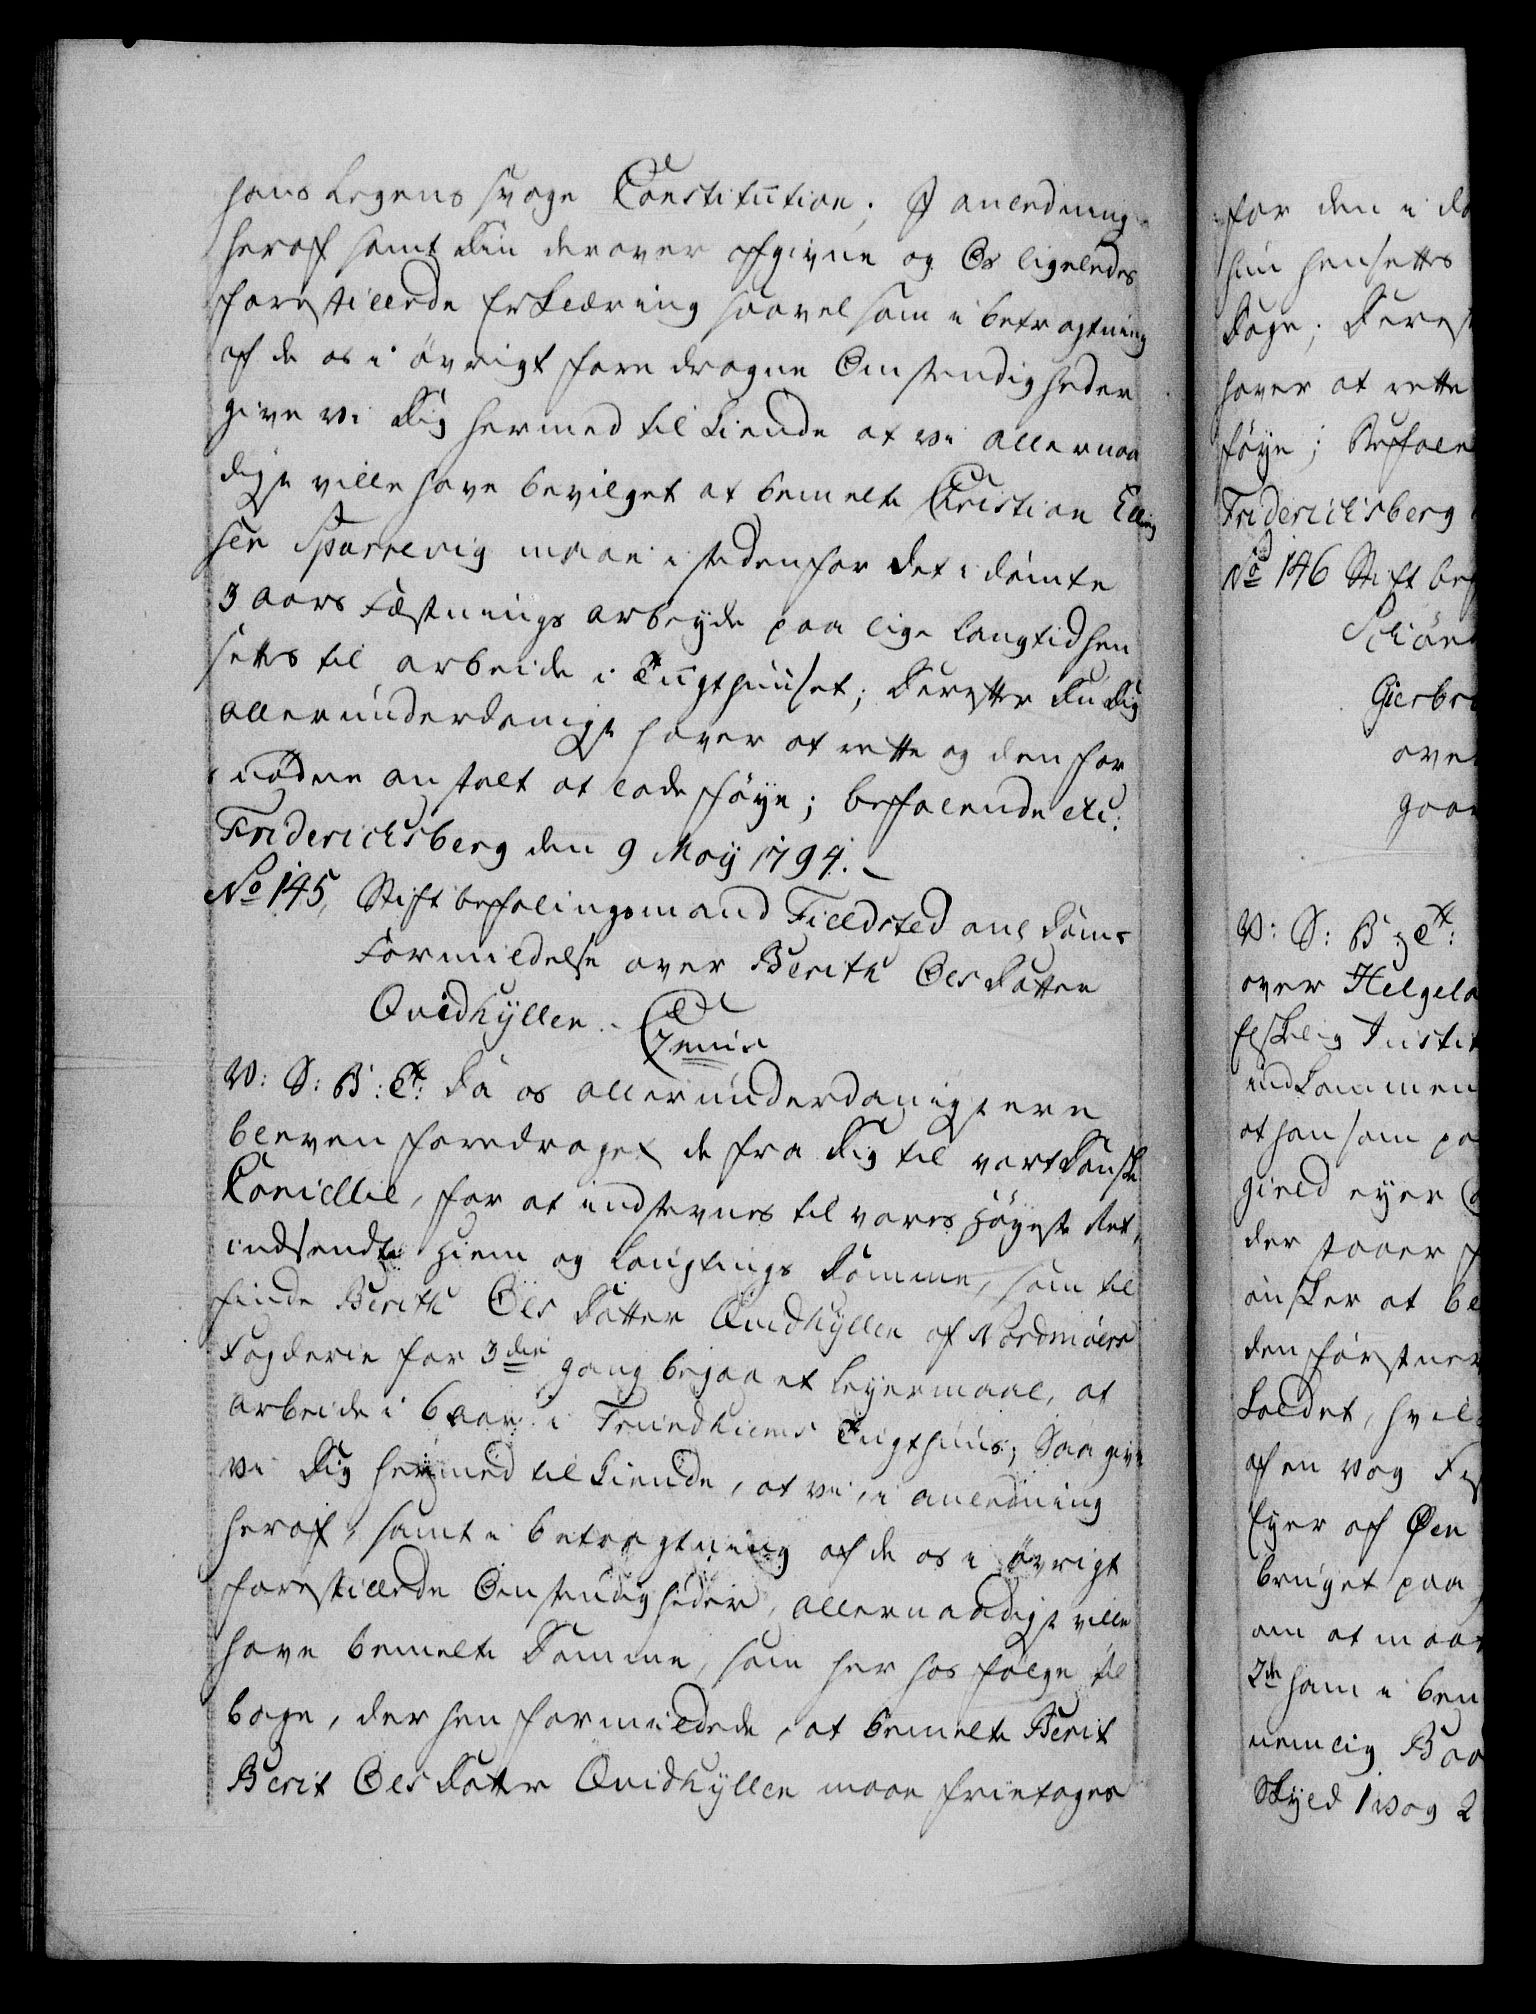 hans Legens svage Constitution; I anledning
heraf samt Din derover afgivne og Os ligeledes
forestillede Erklæring saavelsom i betragtning
af de os i øvrigt foredragne Omstendigheder
give vi Dig hermed til kiende at vi allernaa
digst ville have bevilget at bemelte Christian Elling
sen Sparrevig maae i stedenfor det idømte
3 aars Fæstnings arbeyde paa lige lang tid hen
settes til arbeide i Tugthuuset; Derefter Du Dig
allerunderdanigst haver at rette og den for
nødne anstalt at lade føye; befalende etc:
Friderichsberg den 9 May 1794.
No 145, Stiftbefalingsmand Fieldsted anl Doms
Formildelse over Berith Olsdatter
Qvidhyllen. Gratis
V: S: B: Etc: Da os allerunderdanigst ere
bleven foredraget de fra Dig til vort Danske
Cancellie, for at indstevnes til vores Høyeste Ret,
indsendte Hiem og Laugtings Domme, som til
finde Berith Ols Datter Qvidhyllen af Nordmøers
Fogderie for 3die gang begaaet Leyermaal, at
arbeide i 6 aar i Trundhiems Tugthuus; Saa give
vi Dig hermed til kiende, at vi, i anledning
heraf, samt i betragtning af de os i øvrigt
forestillede Omstendigheder, allernaadigst ville
have bemelte Domme, som her hos følge til
bage, derhen formildede, at bemelte Berit
Berit Olsdatter Qvidhyllen maae frietages
for den i
hun hensettes
Dage; Derefter
haver at rette
føye; Befalen
Friderichsberg
No 146 Stift bef
over
V: S: B: Etc:
over Helgela
elskelig Justit
indkommen
at han som
gield eyer
der staaer
ønsker at be
den første
af en vog
Eyer af Øen
bruget paa
om at maa
2de ham i ben
nemlig
Skyld 1 vog 2